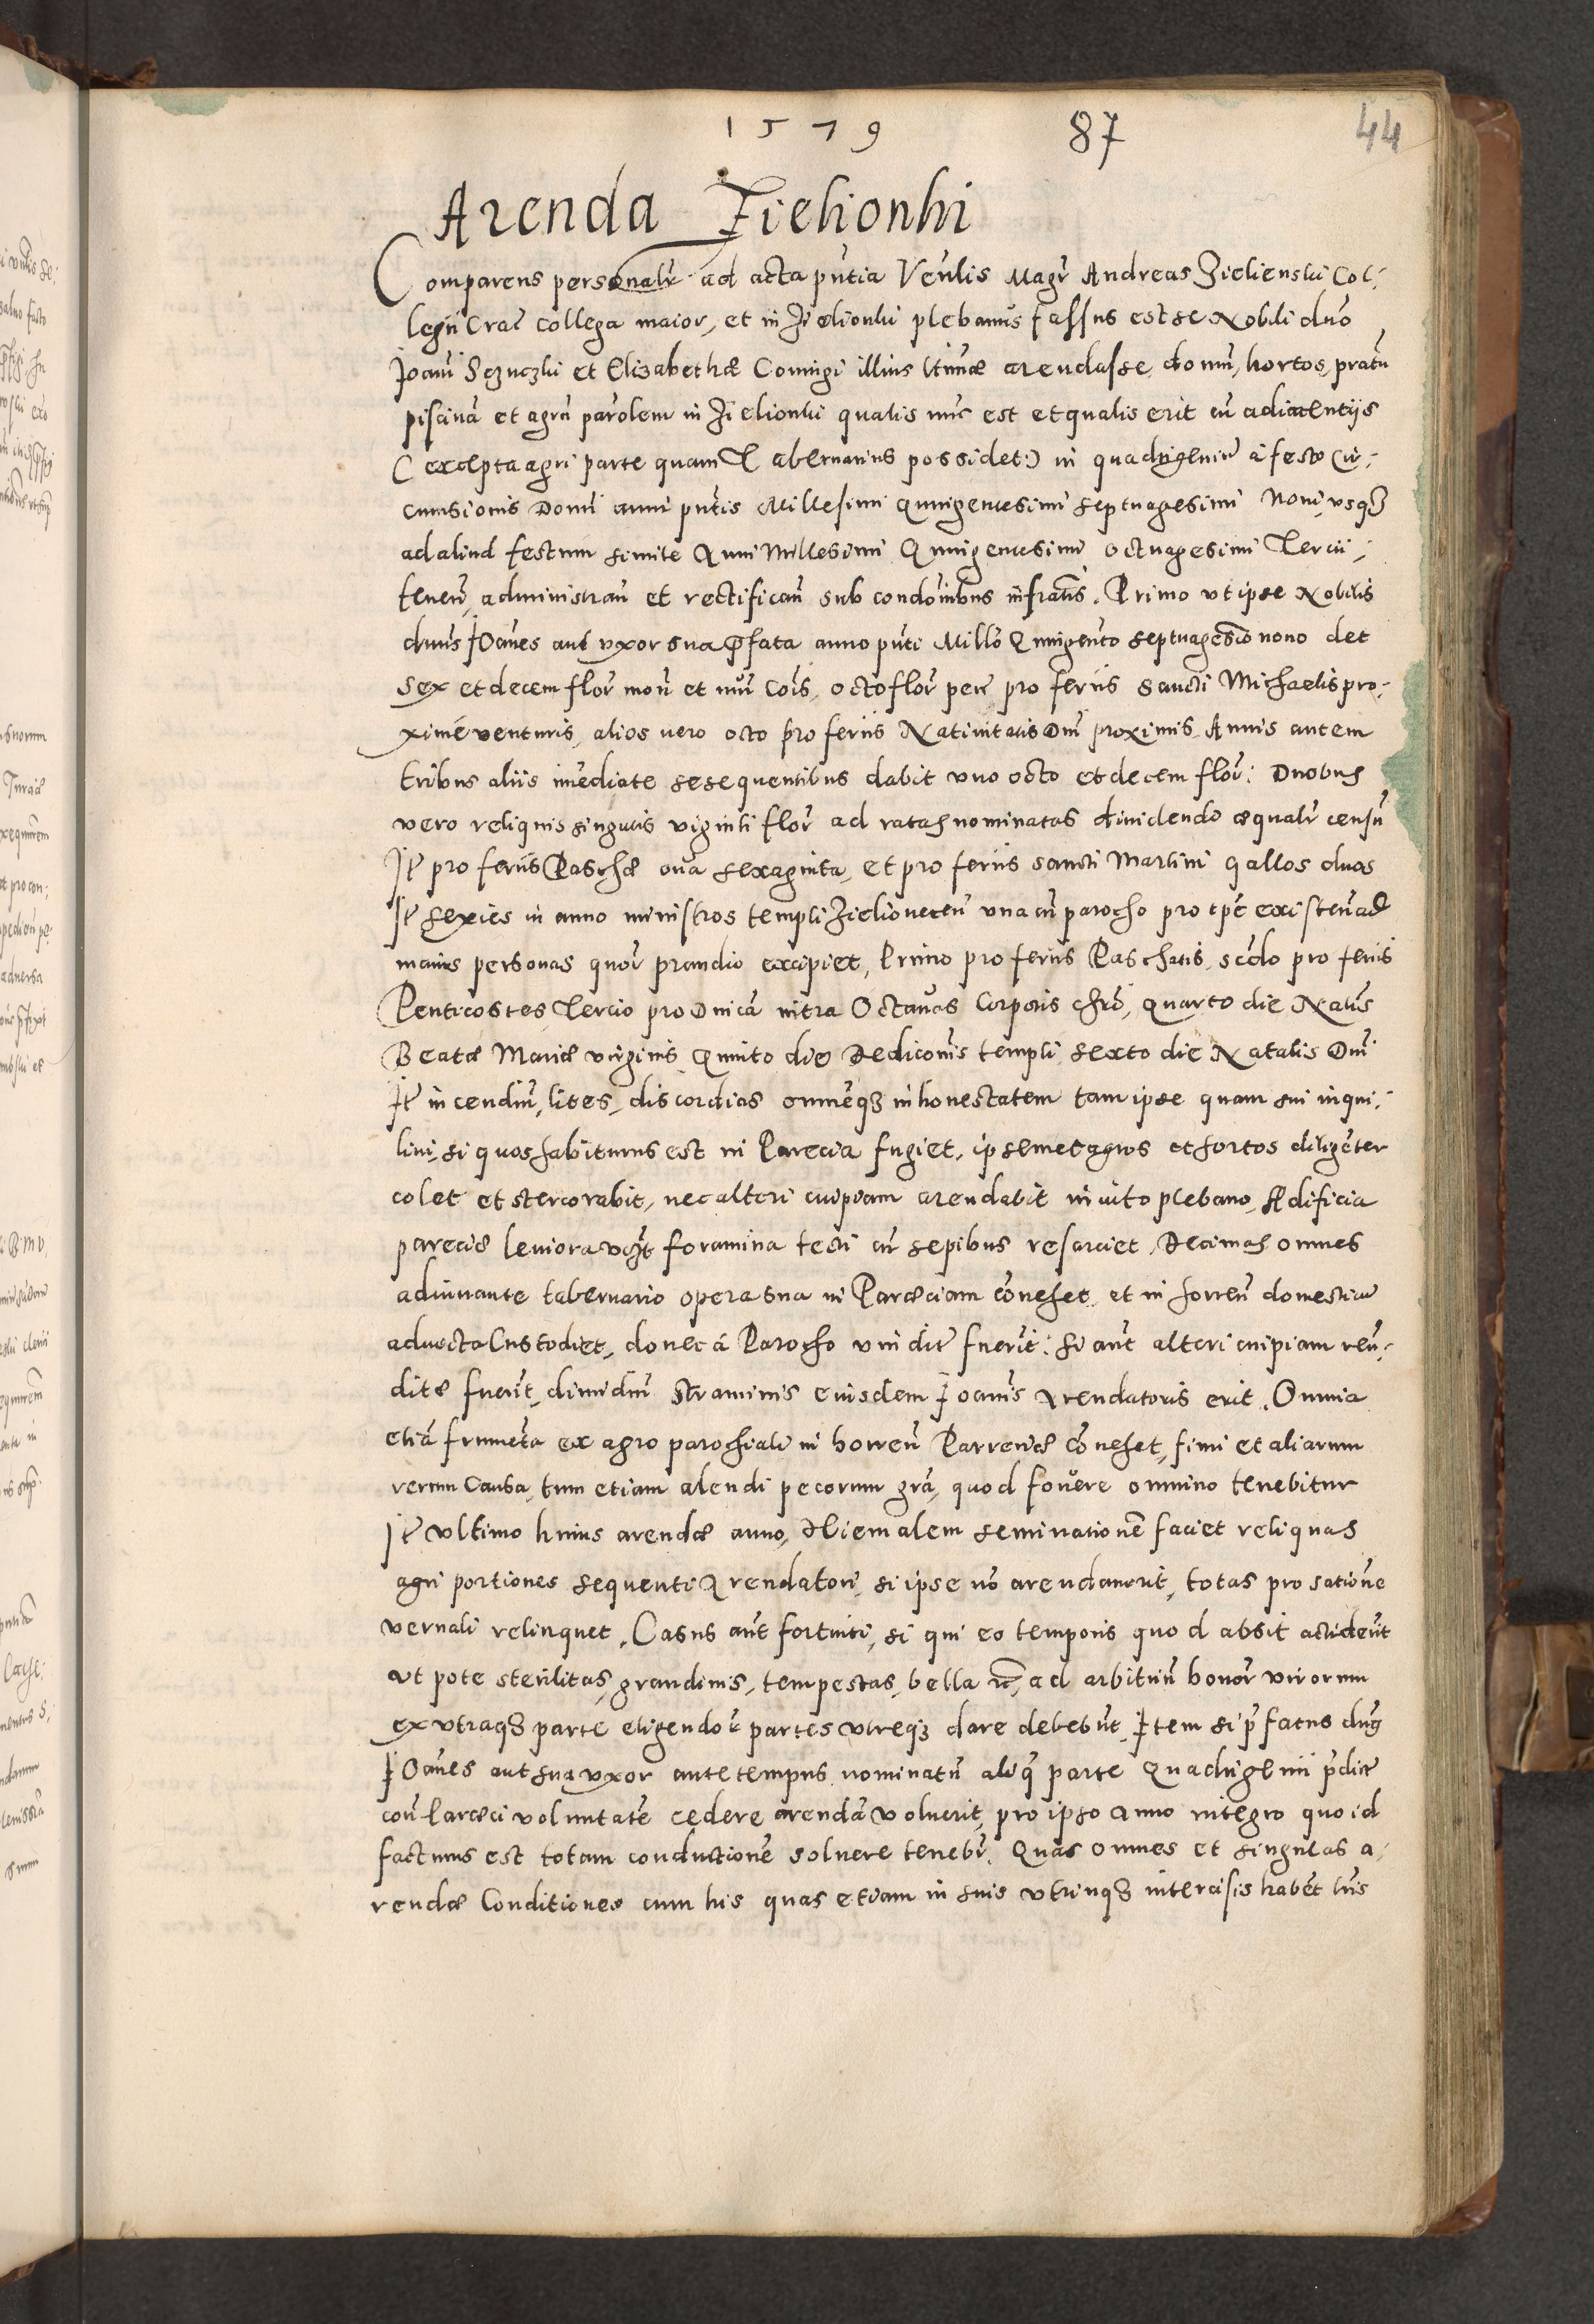 1579 87 44
Arenda Zielionki
Comparens personalr ad acta pntia Venlis Magr Andreas Zielienski Col-
legii Crac collega maior, et in Zielionki plebanus fassus est se Nobili dno
Joanni et Elizabethæ Coniugi illius ltimæ arendasse domu, hortos, pratu
piscinā et agru parolem in Zielionki qualis nuc est et qualis erit cu adiacentiis
(excepta agri parte quam Tabernarius possidet:) in quadrigeniu à festo Cir-
cumsionis Domi anni pntis Millesimi Quingentesimi septuagesimi Noni, usq3
ad aliud festum simile Anni Millesimi Quingentesimi octuagesimi Tercii
tenen, administran et rectifican sub condoinbus infratis. Primo ut ipse Nobilis
dnus Joanes aut uxor sua pfata anno pnti Millo Quingento septuagesio nono det
sex et decem flor mon et nūi cois, octo flor pec pro feriis sancti Michaelis pro-
ximé venturis, alios uero octo pro feriis Nativitatis Dni proximis. Annis autem
tribus aliis imediate sese quentibus dabit uno octo et decem flor: Duobus
vero reliquis singulis viginti flor ad ratas nominatas dividendo æqualr censu
It pro feriis Paschæ oua sexaginta, et pro feriis sancti Martini gallos duos
It sexies in anno ministros templi Zielionecen una cu parocho pro tpe existen ad
manis personas quor prandio excipiet, Primo pro feriis Paschatis, scdo pro feriis
Penticostes, Tercio pro Dnica intra Octauas Corporis chri, quarto die Natis
Beatæ Mariæ virginis, Quinto die Dedicois templi, sexto die Natalis Dni
It incendiu, lites, discordias omneq3 inhonestatem tam ipse quam sui inqui-
lini, si quos habiturus est in Parecia fugiet, ipsemet agros et hortos diligeter
colet et stercorabit, nec alteri cuipiam arendabit invito plebano, Ædificia
pareciæ leviora foramina tecti cu sepibus resarciet, Decimas omnes
adiuuante tabernario opera sua in Paræciam covehet, et in horreu domesticu
advecta Custodiet, donec á Parocho vindite fuerit: Si aut alteri cuipiam ven-
ditæ fuerit, dimidiu straminis eiusdem Joanis Arendatoris erit. Omnia
etiā frumeta ex agro parochiali in horreu Parreciæ covehet, fimi et aliarum
rerum Causa, tum etiam alendi pecorum gra, quod fouere omnino tenebitur
It ultimo huius arendæ anno, Hiemalem seminatione faciet reliquas
agri portiones sequenti Arendatori, si ipse no arendaverit, totas pro satione
vernali relinquet. Casus aut fortuiti, si qui eo temporis quod absit accideut
ut pote sterilitas, grandinis, tempestas, bella etc, ad arbitriu bonor virorum
ex utraq3 parte eligendor partes utreq3 dare debebut. Item si pfatus dnus
Joanes aut sua uxor ante tempus nominatu aliq parte Quadrigenii pdict
con Paræci voluntate cedere arendā voluerit, pro ipso anno integro quo id
facturus est totam conductione solvere tenebr. Quas omnes et singulas a-
rendæ Conditiones cum his quas etiam in suis utrinq3 intercisis habet lris